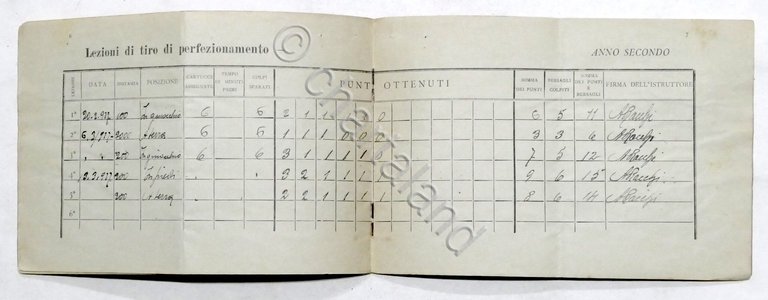 Lezioni di tiro di perfezionamento
ANNO SECONDO
LEZIONI DATA DISTANZA POSIZIONE CARTUCCE ASSEGNATE TEMPO IN MINUTI PRIMI COLPI SPARATI PUNTI OTTENUTI SOMMA DEI PUNTI BERSAGLI COLPITI SOMMA DEI PUNTI E BERSAGLI FIRMA DELL'ISTRUTTORE
1ª 100 In ginocchio 6 6 2 1 1 1 1 0 6 5 11
2ª A terra 6 6 1 1 1 0 0 0 3 3 6
3ª " " 200 In ginocchio 6 6 3 1 1 1 1 0 7 5 12
4ª 200 In piedi " " 3 2 1 1 1 1 9 6 15
5ª 300 A terra 2 2 1 1 1 1 8 6 14
6ª
© cartaland